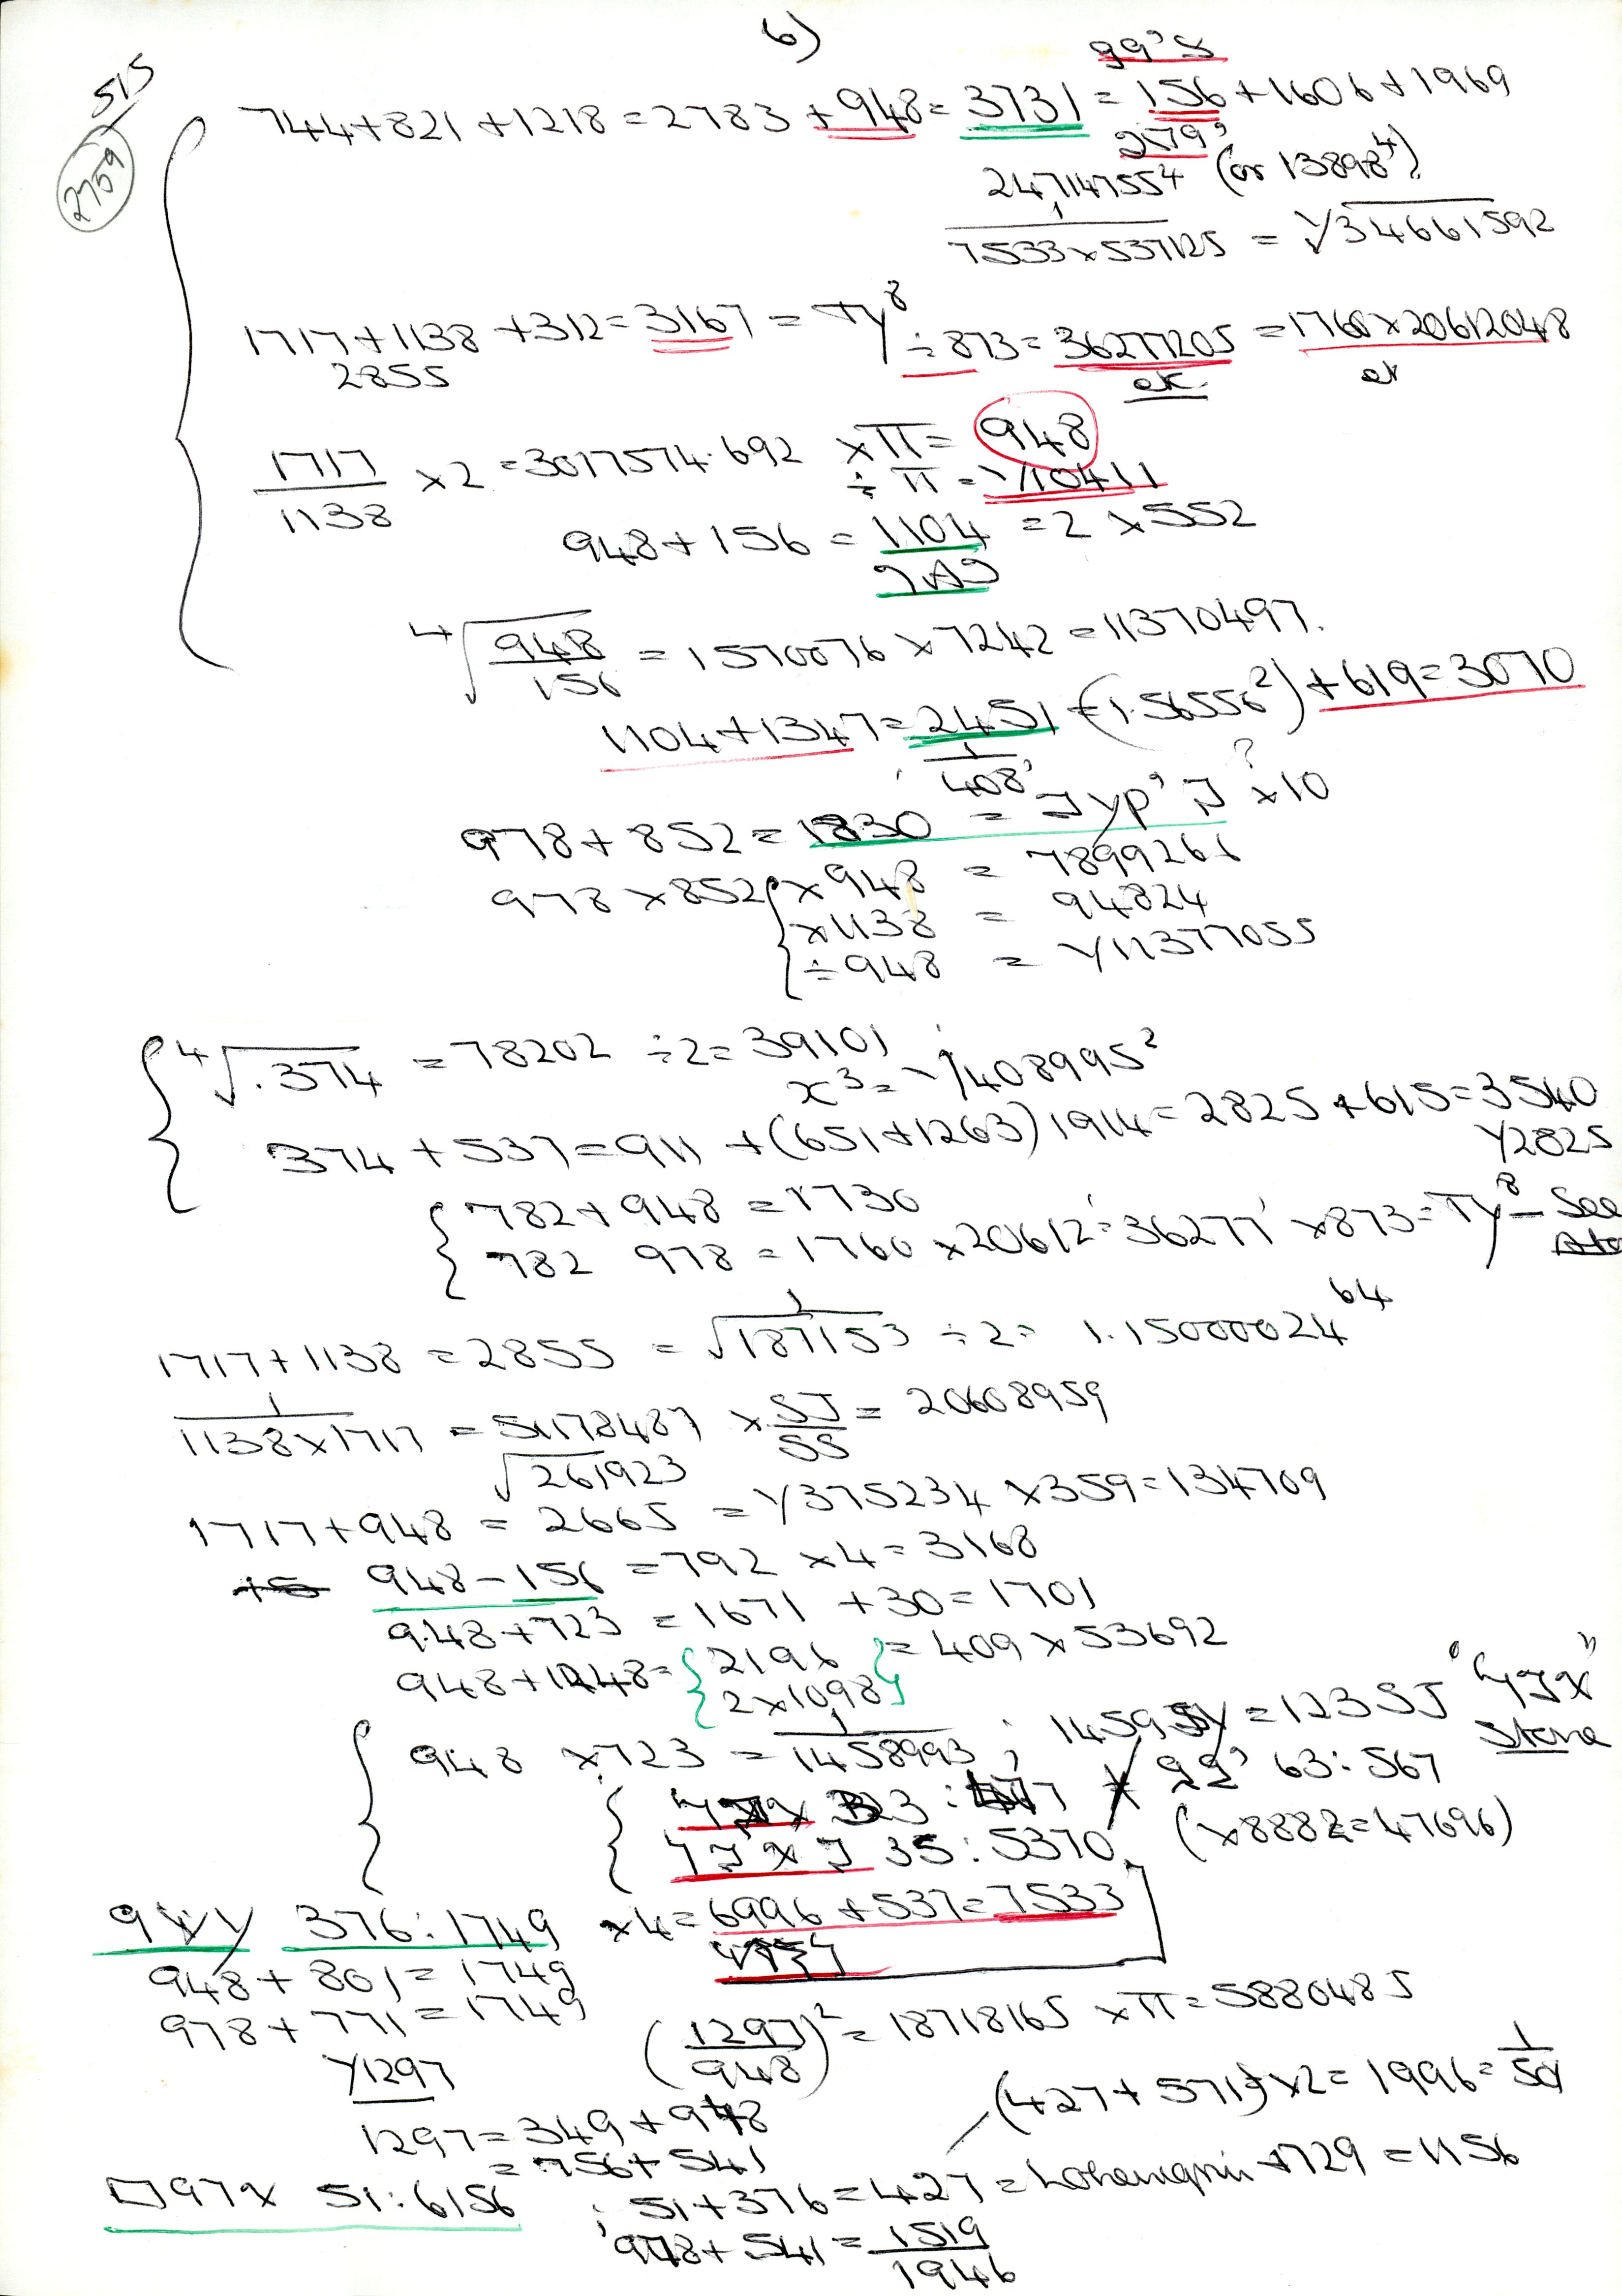 6)
515
2759
99's
744+821+1218=2783+948=3731=156+1606+1969
279'
247147554 (or 13898⁴)
1
7533×537125 = √34661592
1717+1138+312=3167=πy⁸÷873=36277205=1760×20612048
2855
ok
1717
1138
×2=3017574.692 ×π=948
÷π=√110411
948+156=1104=2×552
⁴√948/156=1570076×7242=11370497.
1104+1347=2451+(1.56556²)+619=3070
1
'408'
978+852=1830= ×10
978×852 {×948=7899266
×1138=94824
÷948=√11377055
⁴√.374=78202÷2=39101
x³=√1408995²
374+537=911+(651+1263)1914=2825+615=3540
√2825
{782+948=1730
782 978=1760×20612=36277×873=πy⁸ — See
1717+1138=2855=√187153÷2=1.15000024⁶⁴
1
1138×1717=51178487×SJ/SS=20608959
√261923
1717+948=2665=√375234×359=134709
948-156=792×4=3168
948+723=1671+30=1701
948+1248={2196
2×1098}=409×53692
948×723=1/1458993; =123SJ
Stone
63:567
35:5370 (×8882=47696)
376:1749 ×4=6996+537=7533
948+801=1749
978+771=1749
√1297
(1297/948)²=18718165×π=5880485
1297=349+948
=756+541
(427+571)×2=1996=
51:6156 ; 51+376=427=Lohengrin+729=1156
978+541=1519
1946